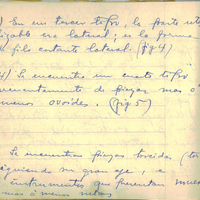 ) En un tercer tipo, la parte uti
lizable era lateral; es la forma
de filo cortante lateral. (fig 4)
4) Se encuentra un cuarto tipo
frecuentemente de piezas mas o
menos ovoides. (fig 5)
Se encuentran piezas torcidas (
siguiendo su granaje, e
instrumentos que presentan
mas o menos